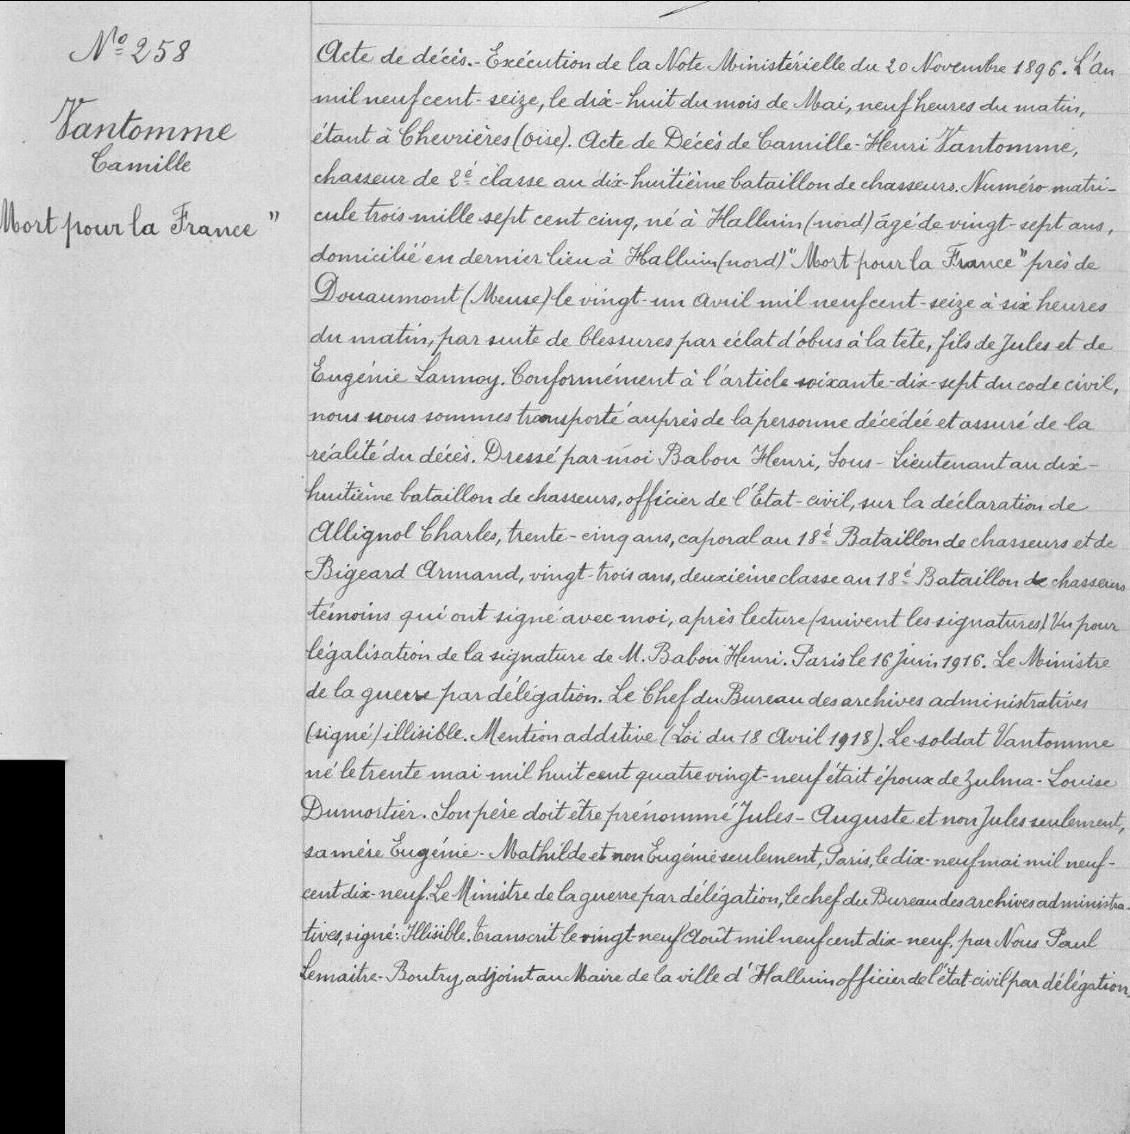 Nº 258
Vantomme
Camille
Mort pour la France"
Acte de décès.- Exécution de la Note Ministérielle du 20 Novembre 1896. L'an
mil neuf cent-seize, le dix-huit du mois de Mai, neuf heures du matin,
étant à Chevrières (Oise). Acte de Décès de Camille-Henri Vantomme,
chasseur de 2è classe au dix-huitième bataillon de chasseurs. Numéro matri-
cule trois mille sept cent cinq, né à Halluin (nord) âgé de vingt-sept ans,
domicilié en dernier lieu à Halluin (nord) "Mort pour la France" près de
Douaumont (Meuse) le vingt-un Avril mil neuf cent-seize à six heures
du matin, par suite de blessures par éclat d'obus à la tête, fils de Jules et de
Eugénie Lannoy. Conformément à l'article soixante-dix-sept du code civil,
nous nous sommes transporté auprès de la personne décédée et assuré de la
réalité du décès. Dressé par moi Babou Henri, Sous-Lieutenant au dix-
huitième bataillon de chasseurs, officier de l'Etat-civil, sur la déclaration de
Allignol Charles, trente-cinq ans, caporal au 18è Bataillon de chasseurs et de
Bigeard Armand, vingt-trois ans, deuxième classe au 18è Bataillon de chasseurs
témoins qui ont signé avec moi, après lecture (suivent les signatures) Vu pour
légalisation de la signature de M. Babou Henri. Paris le 16 Juin 1916. Le Ministre
de la guerre par délégation. Le Chef du Bureau des archives administratives
(signé) illisible. Mention additive (Loi du 18 Avril 1918). Le soldat Vantomme
né le trente mai mil huit cent quatre vingt-neuf était époux de Zulma-Louise
Dumortier. Son père doit être prénommé Jules-Auguste et non Jules seulement,
sa mère Eugénie-Mathilde et non Eugénie seulement, Paris, le dix-neuf mai mil neuf-
cent dix-neuf. Le Ministre de la guerre par délégation, le chef du Bureau des archives administra-
tives, signé: Illisible. Transcrit le vingt-neuf Août mil neuf cent dix-neuf, par Nous Paul
Lemaitre-Boutry, adjoint au Maire de la ville d'Halluin officier de l'état-civil par délégation.